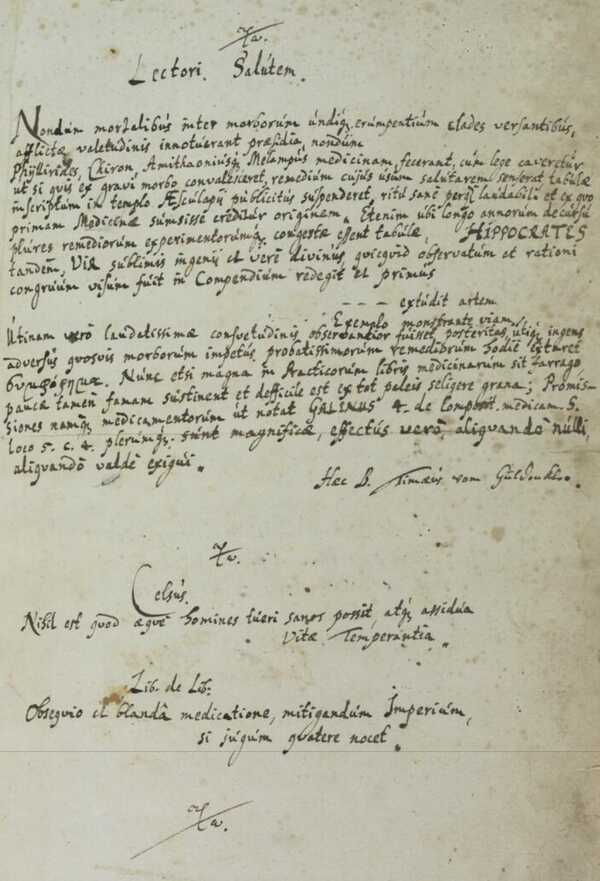 Lectori. Salutem.
Nondum mortalibus inter morborum undiq; erumpentium clades versantibus,
afflictæ valetudinis innotuerant præsidia, nondum
Phyllirides, Chiron, Amithaoniusq; Melampus medicinam fecerant, cum lege caveretur
ut si quis ex gravi morbo convalesceret, remedium cujus usum salutarem senserat tabulæ
inscriptum in templo Æsculapii publicitus suspenderet, ritu sanè perq; laudabili et ex quo
primam Medicinæ sumsisse creditur originem. Etenim ubi longo annorum decursu
plures remediorum experimentorumq; congestæ essent tabulæ, HIPPOCRATES
tandem, Vir sublimis ingenii et verè divinus, quicquid observatum et rationi
congruum visum fuit in Compendium redegit et primus
--- extudit artem
Exemplo monstrante viam.
Utinam verò laudatissimæ consuetudinis observantior fuisset posteritas, utiq; ingens
adversus quosvis morborum impetus probatissimorum remediorum hodie extaret
Nunc etsi magna in Practicorum libris medicinarum sit farrago,
paucæ tamen famam sustinent et defficile est ex tot paleis seligere grana; Promis-
siones namq; medicamentorum ut notat GALENUS 4. de Composit. medicam. S.
loco 5. c. 4. plerumq; sunt magnificæ, effectus verò, aliquando nulli,
aliquando valdè exigui.
Hæc B. Timæus von Güldenklee.
Celsus.
Nihil est quod æquè homines tueri sanos possit, atq; assidua
Vitæ Temperantia.
Lib. de Lib:
Obsequio et blandâ medicatione, mitigandum Imperium,
si jugum quatere nocet.